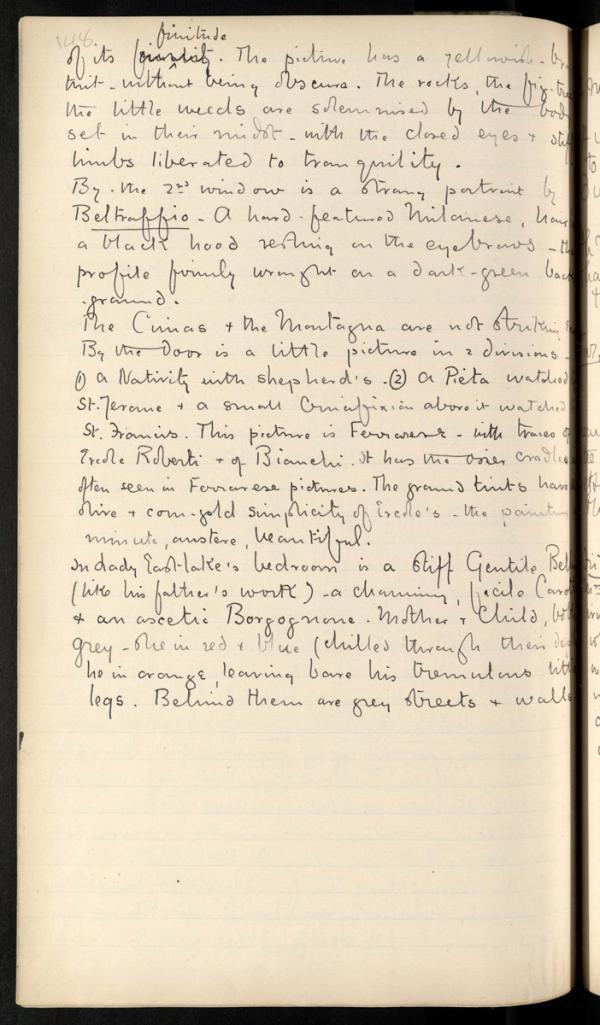 148.
finitude
of its finality. The picture has a yellowish-br
tint - without being obscure. The rocks, the fig-tree
the little weeds are solemnised by the body
set in their midst - with the closed eyes + stiff
limbs liberated to tranquility.
By the 2nd window is a strong portrait by
Beltraffio - A hard-featured Milanese,
a black hood resting on the eyebrows - th
profile firmly wrought on a dark-green back
ground.
The Cimas + the Montagna are not striking
By the door is a little picture in 2 divisions -
(1) a Nativity with shepherd's. (2) a Pieta watched
St. Jerome + a small Crucifixion above it watched
St. Francis. This picture is Ferrarese - with traces of
Ercole Roberti + of Bianchi. It has the osier cradle
often seen in Ferrarese pictures. The ground tints have
olive + corn-gold simplicity of Ercole's - the painting
minute, austere, beautiful.
In Lady Eastlake's bedroom is a stiff Gentile Bel
(like his father's work) - a charming, facile Carot
+ an ascetic Borgognone. Mother + Child, both
grey - she in red + blue (chilled through their
he in orange, leaving bare his tremulous little
legs. Behind them are grey streets + walls